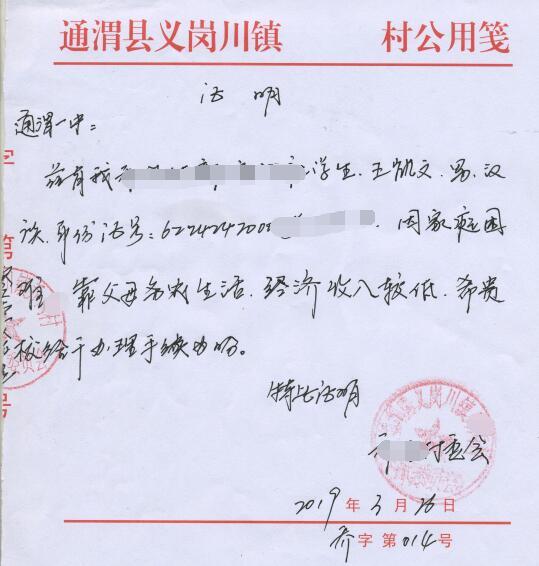 通渭县义岗川镇 村公用笺
证明
通渭一中：
兹有我 学生．王凯文．男．汉
族．身份证号：622424200 ．因家庭困
难 靠父母务农生活．经济收入较低．希贵
校给予办理手续为盼。
特此证明
村委会
2019年3月26日
乔字第014号
字
第
号
渭义岗川镇